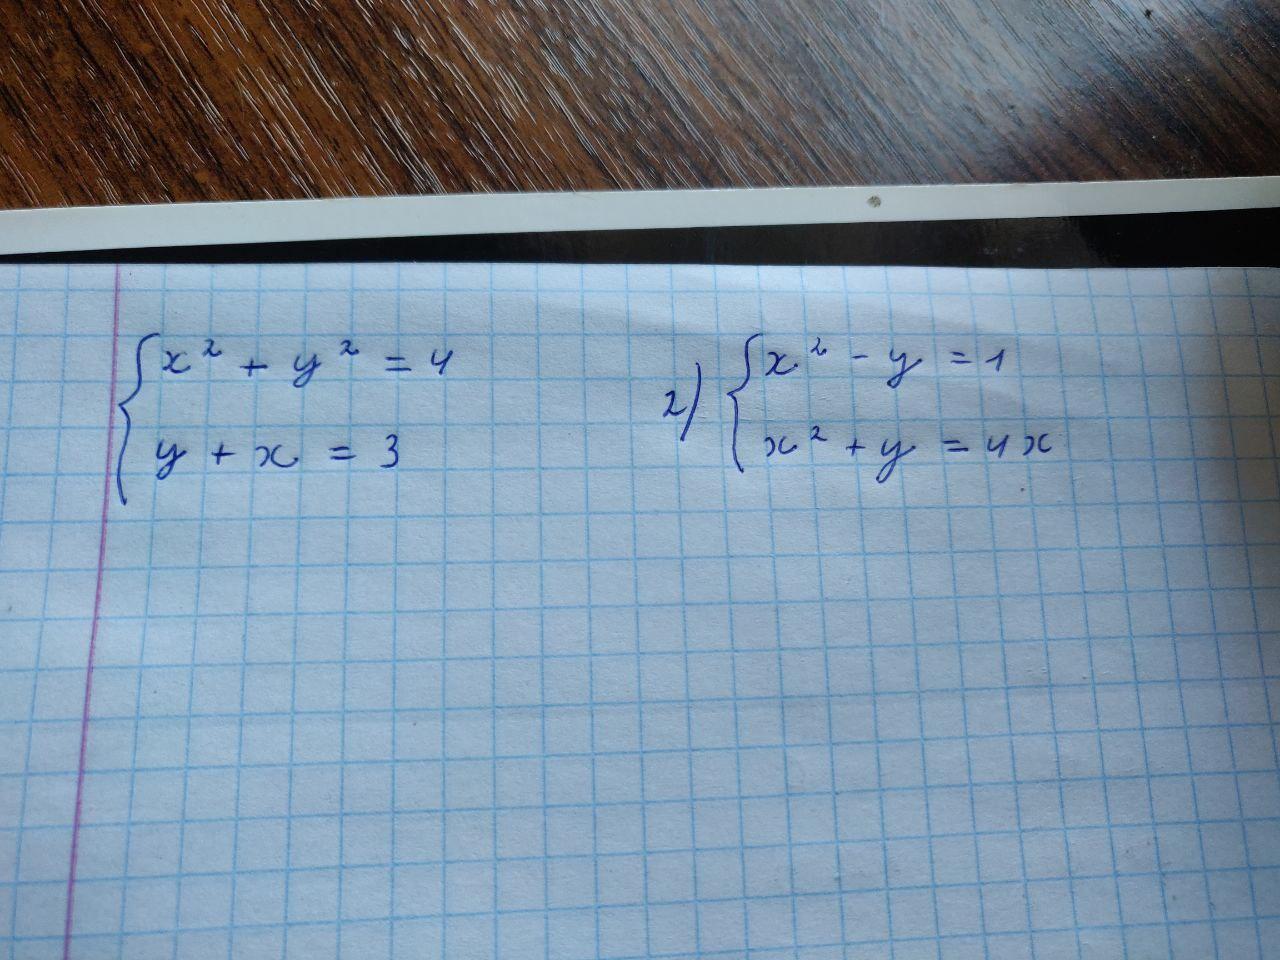 x² + y² = 4
y + x = 3
2) x² - y = 1
x² + y = 4x